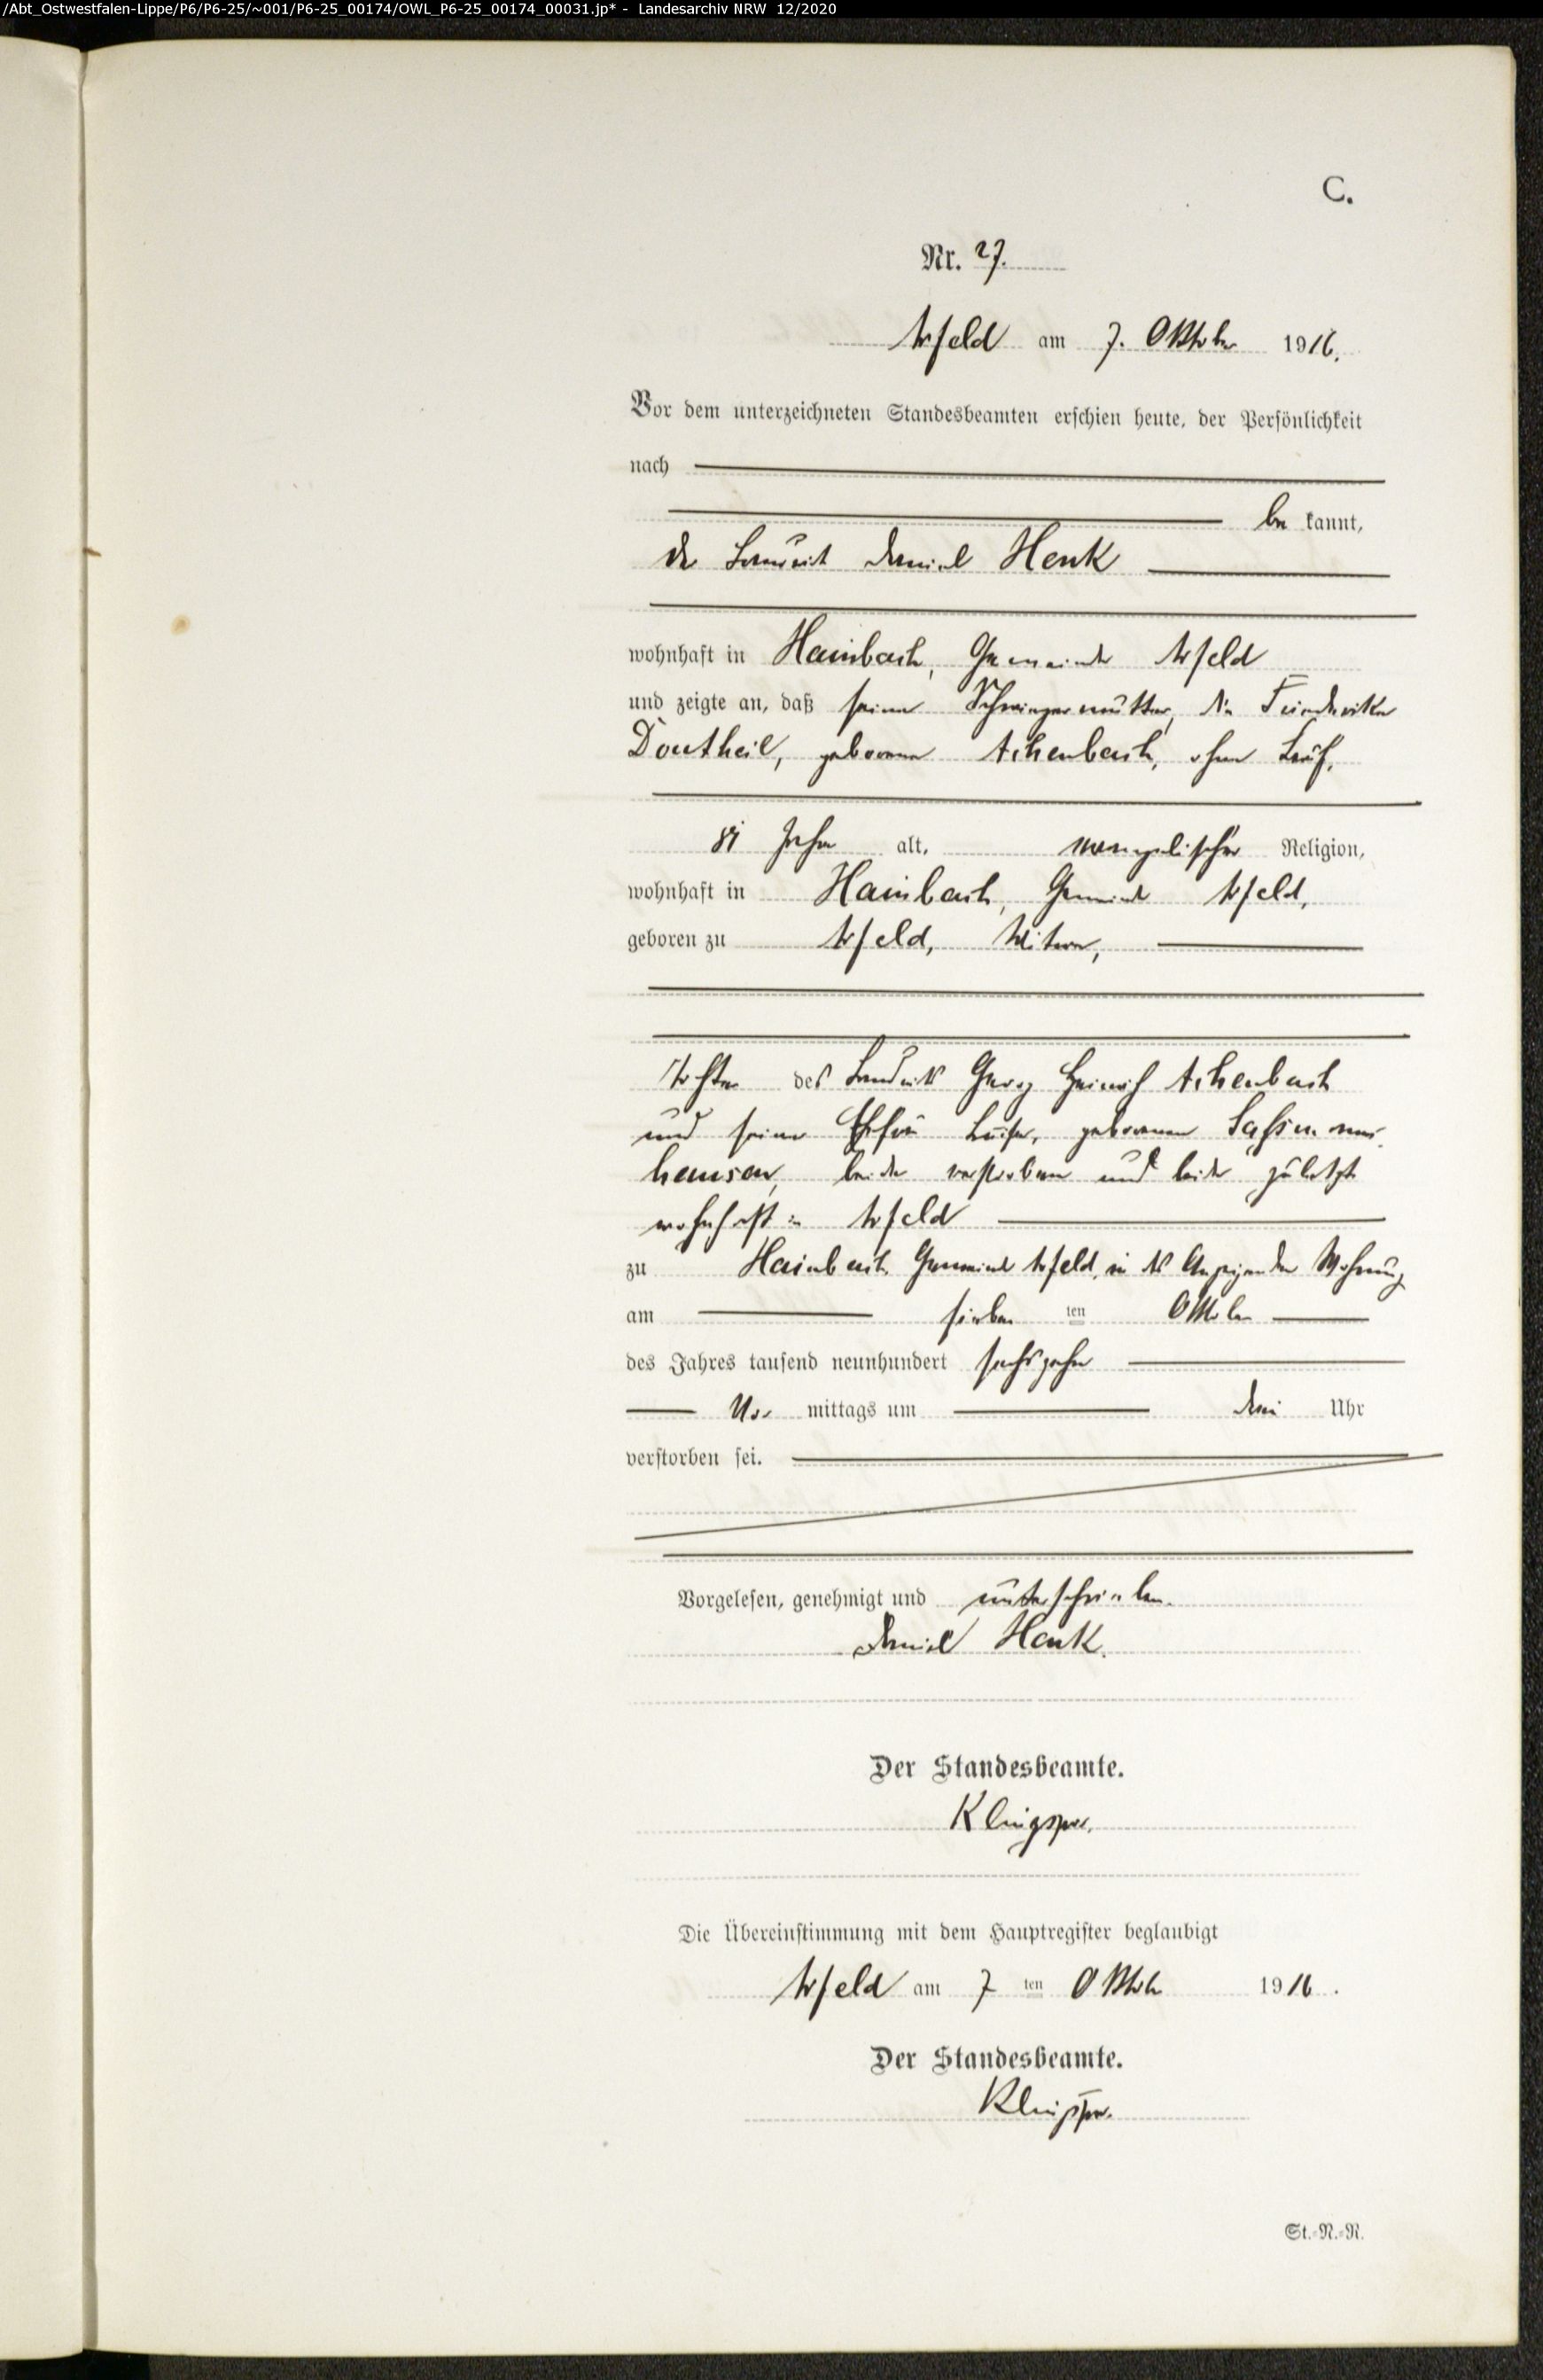 /Abt_Ostwestfalen-Lippe/P6/P6-25/~001/P6-25_00174/OWL_P6-25_00174_00031.jp* - Landesarchiv NRW 12/2020
C.
Nr. 27.
Arfeld am 7. Oktober 1916.
Vor dem unterzeichneten Standesbeamten erschien heute, der Persönlichkeit
nach
be kannt,
der Landwirt Daniel Henk
wohnhaft in Hainbach, Gemeinde Arfeld
und zeigte an, daß seine Schwiegermutter, die Friederike
Dautheil, geborene Achenbach, ohne
Jahre alt, evangelischer Religion,
wohnhaft in Hainbach, Gemeinde Arfeld,
geboren zu Arfeld, Witwe,
Tochter des Landwirts Georg Heinrich Achenbach
und seiner Ehefrau Luise, geborenen Saßmanns-
hausen, beide verstorben und beide zuletzt
wohnhaft in Arfeld
zu Hainbach Gemeinde Arfeld, in des Anzeigenden Wohnung
am sieben ten Oktober
des Jahres tausend neunhundert sechszehn
Vor mittags um drei Uhr
verstorben sei.
Vorgelesen, genehmigt und unterschrieben.
Daniel Henk.
Der Standesbeamte.
Klingspor.
Die Übereinstimmung mit dem Hauptregister beglaubigt
Arfeld am 7 ten Oktober 1916.
Der Standesbeamte.
Klingspor.
St.-N.-R.